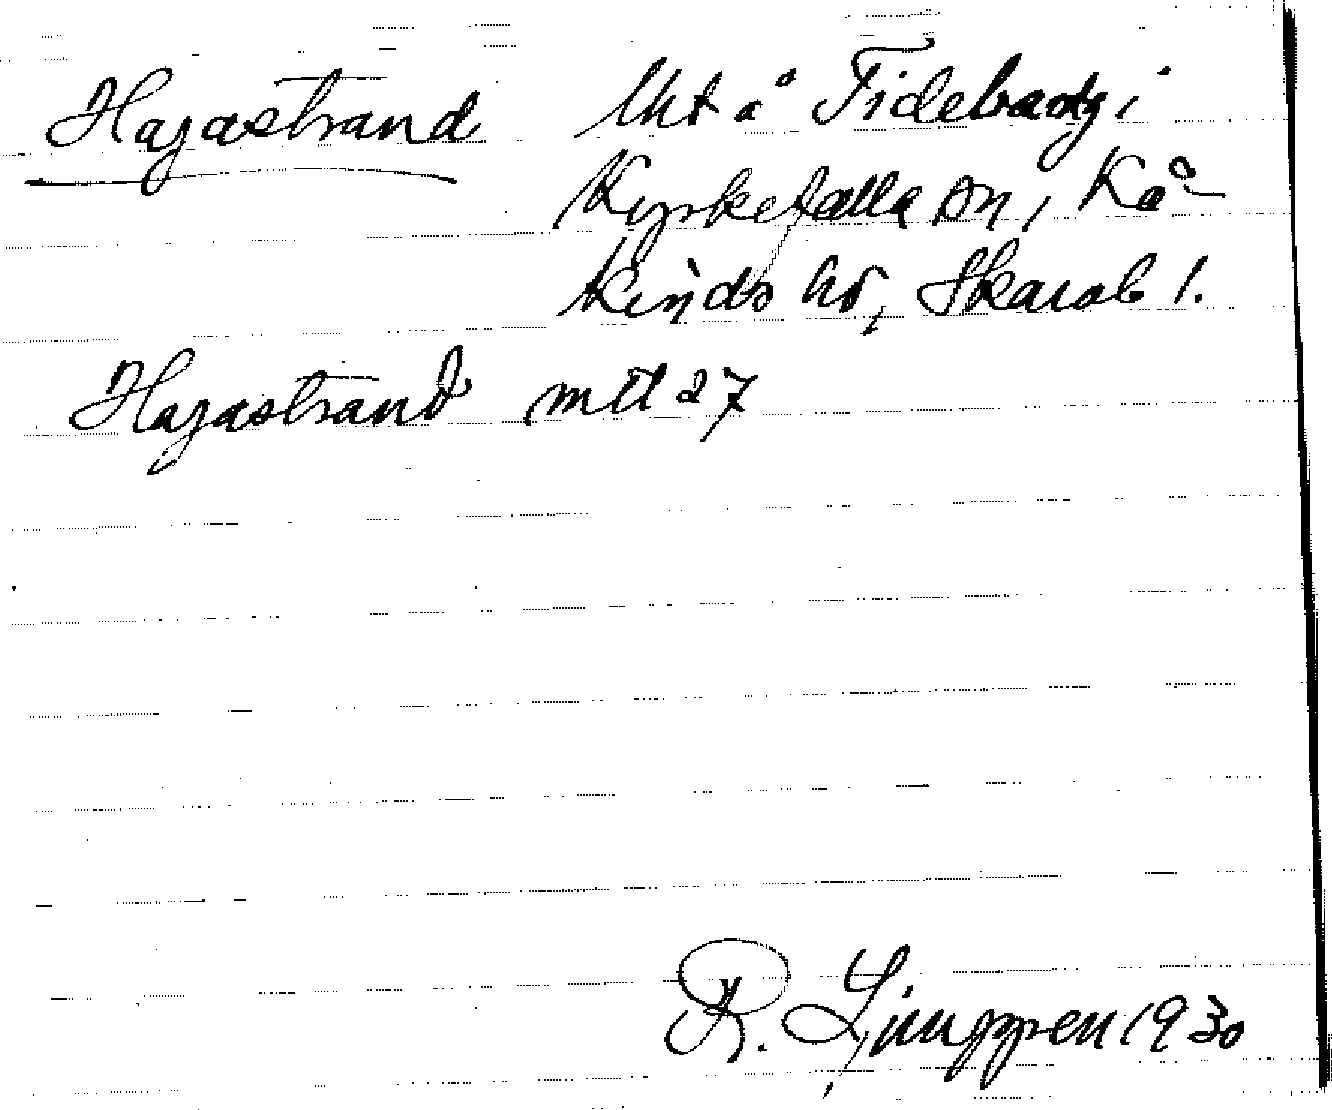 Hagastrand lht å Fidebacka i
Kyrkefalla sn, Kå-
kinds hd, Skarab l.
Hagastrand mtl 27
R. Ljunggren 1930